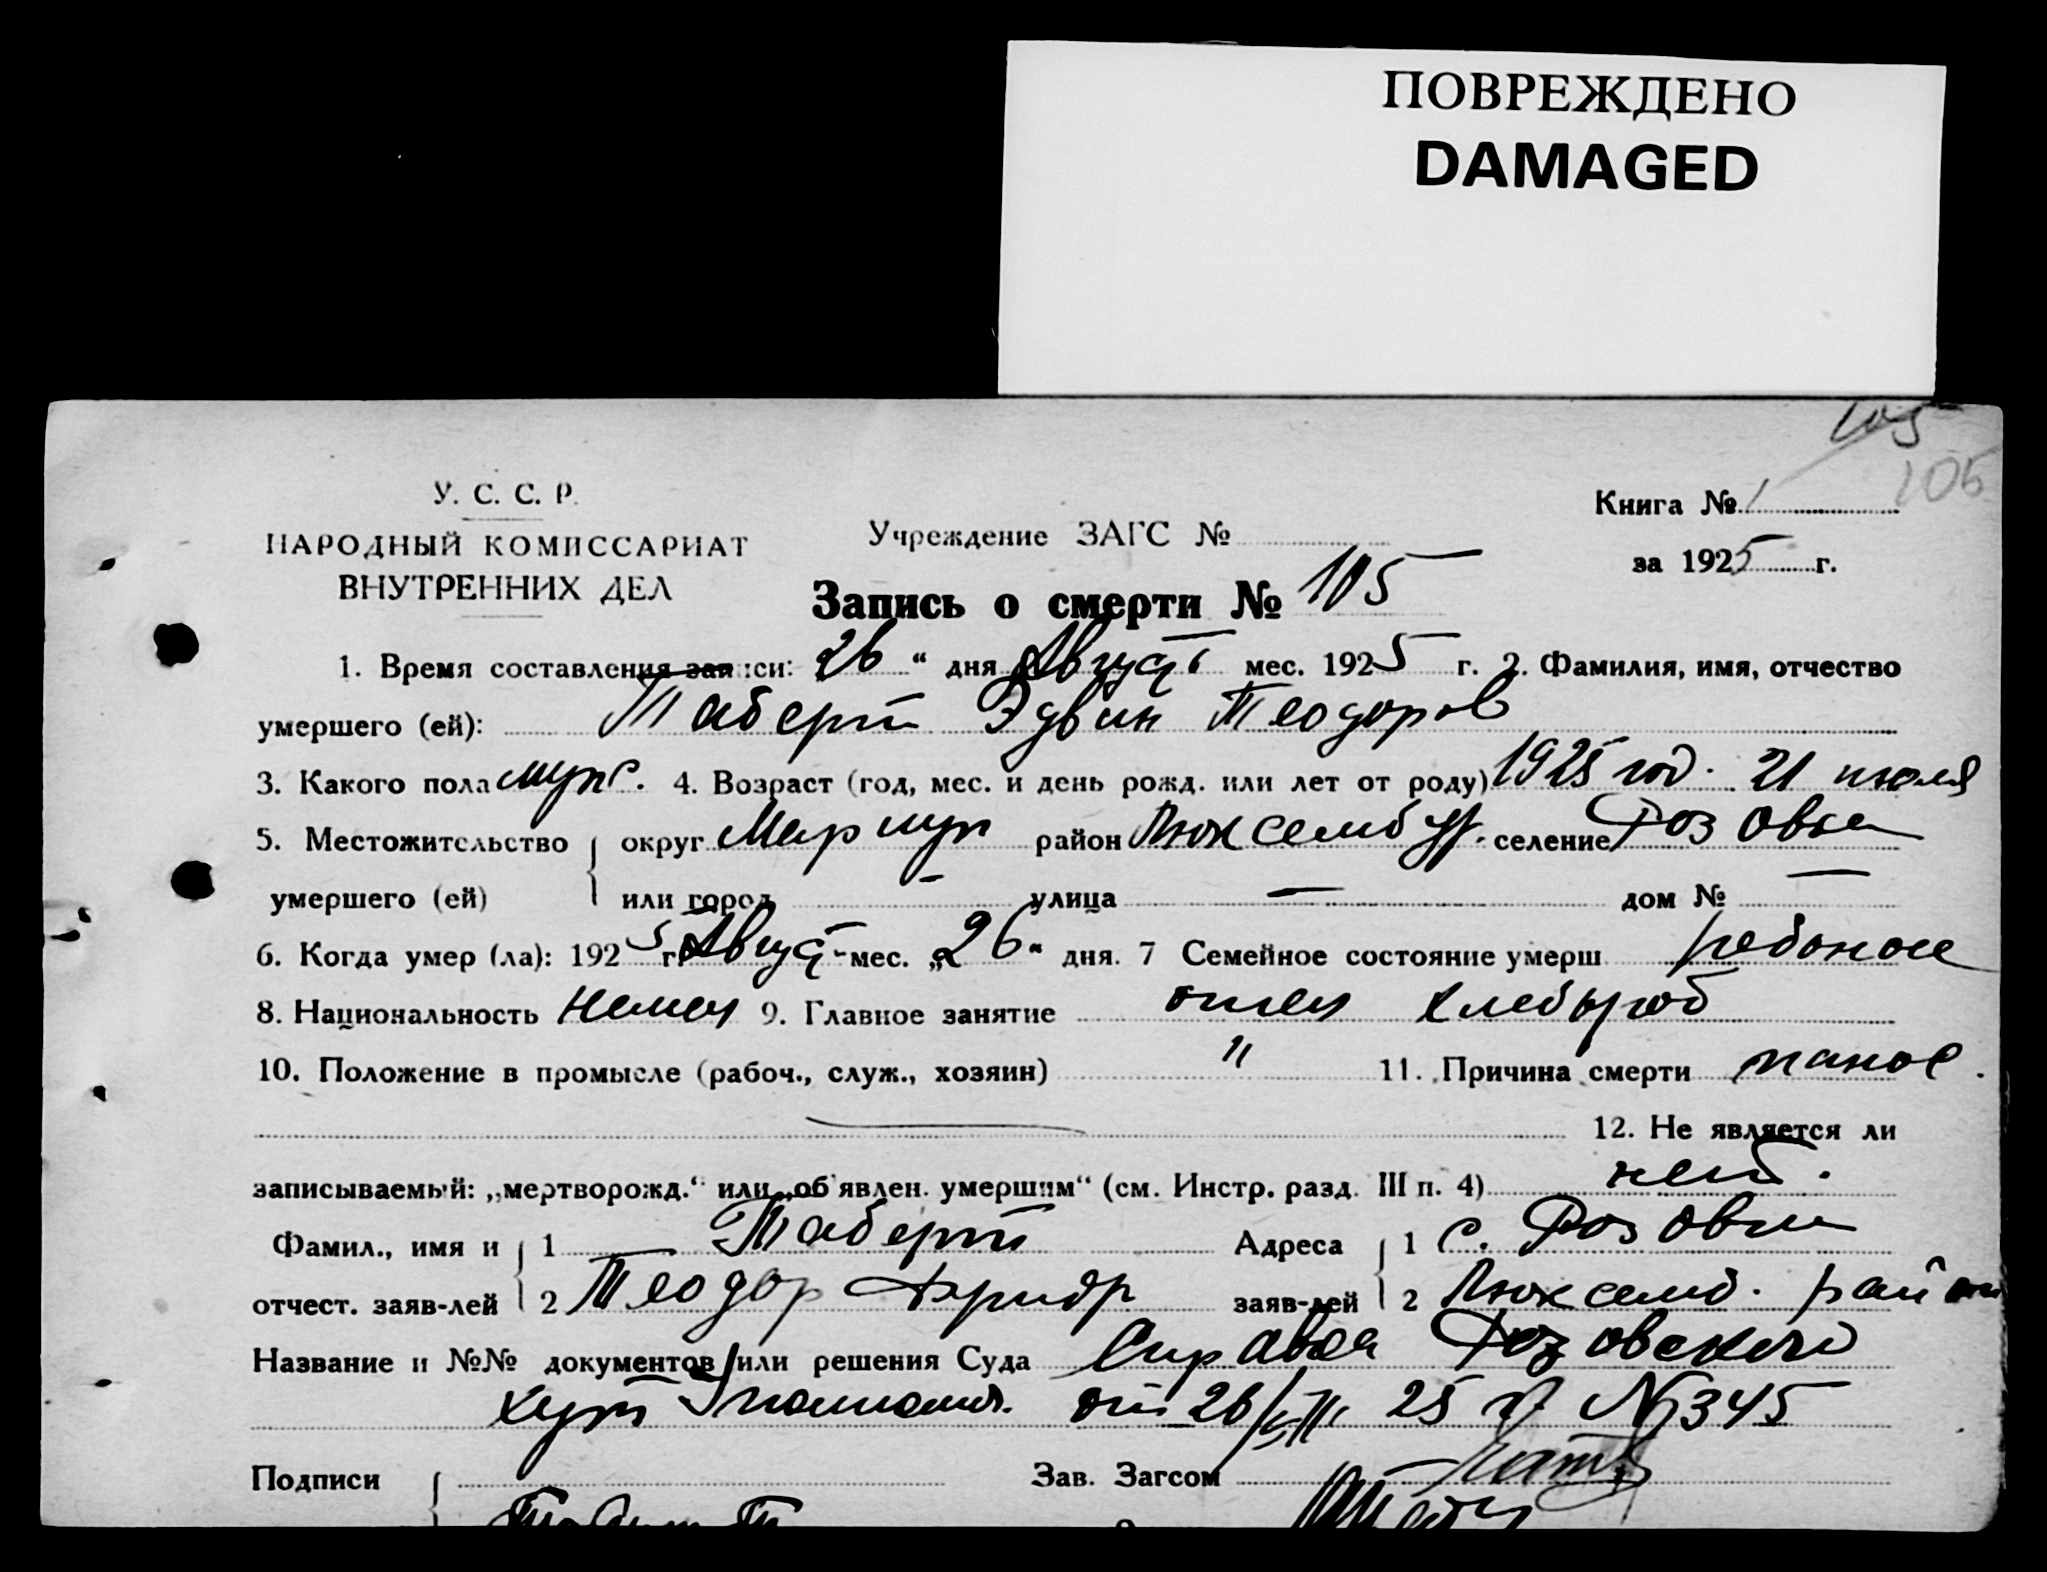 ПОВРЕЖДЕНО
DAMAGED
105
106
У. С. С. Р.
НАРОДНЫЙ КОМИССАРИАТ
ВНУТРЕННИХ ДЕЛ
Учреждение ЗАГС №
Книга № 1
за 1925 г.
Запись о смерти № 105
1. Время составления записи: 26 " дня Август мес. 1925 г. 2. Фамилия, имя, отчество
умершего (ей): Таберт Эдвин Теодоров
3. Какого пола мужс. 4. Возраст (год, мес. и день рожд. или лет от роду) 1925 год. 21 июля
5. Местожительство умершего (ей) округ Мариуп район Люксембург. селение Розовка
или город - улица - дом № -
6. Когда умер (ла): 1925 г. Август мес. „26" дня. 7 Семейное состояние умерш ребонок
8. Национальность немец 9. Главное занятие отец хлебороб
10. Положение в промысле (рабоч., служ., хозяин) " 11. Причина смерти понос.
12. Не является ли
записываемый: „мертворожд." или „об'явлен. умершим" (см. Инстр. разд. III п. 4) нет.
Фамил., имя и отчест. заяв-лей 1 Таберт Адреса заяв-лей 1 с. Розовка
2 Теодор Фридр 2 Люксемб. район
Название и №№ документов или решения Суда Справка Розовского
от 26/VIII 25 г. № 345
Подписи Зав. Загсом